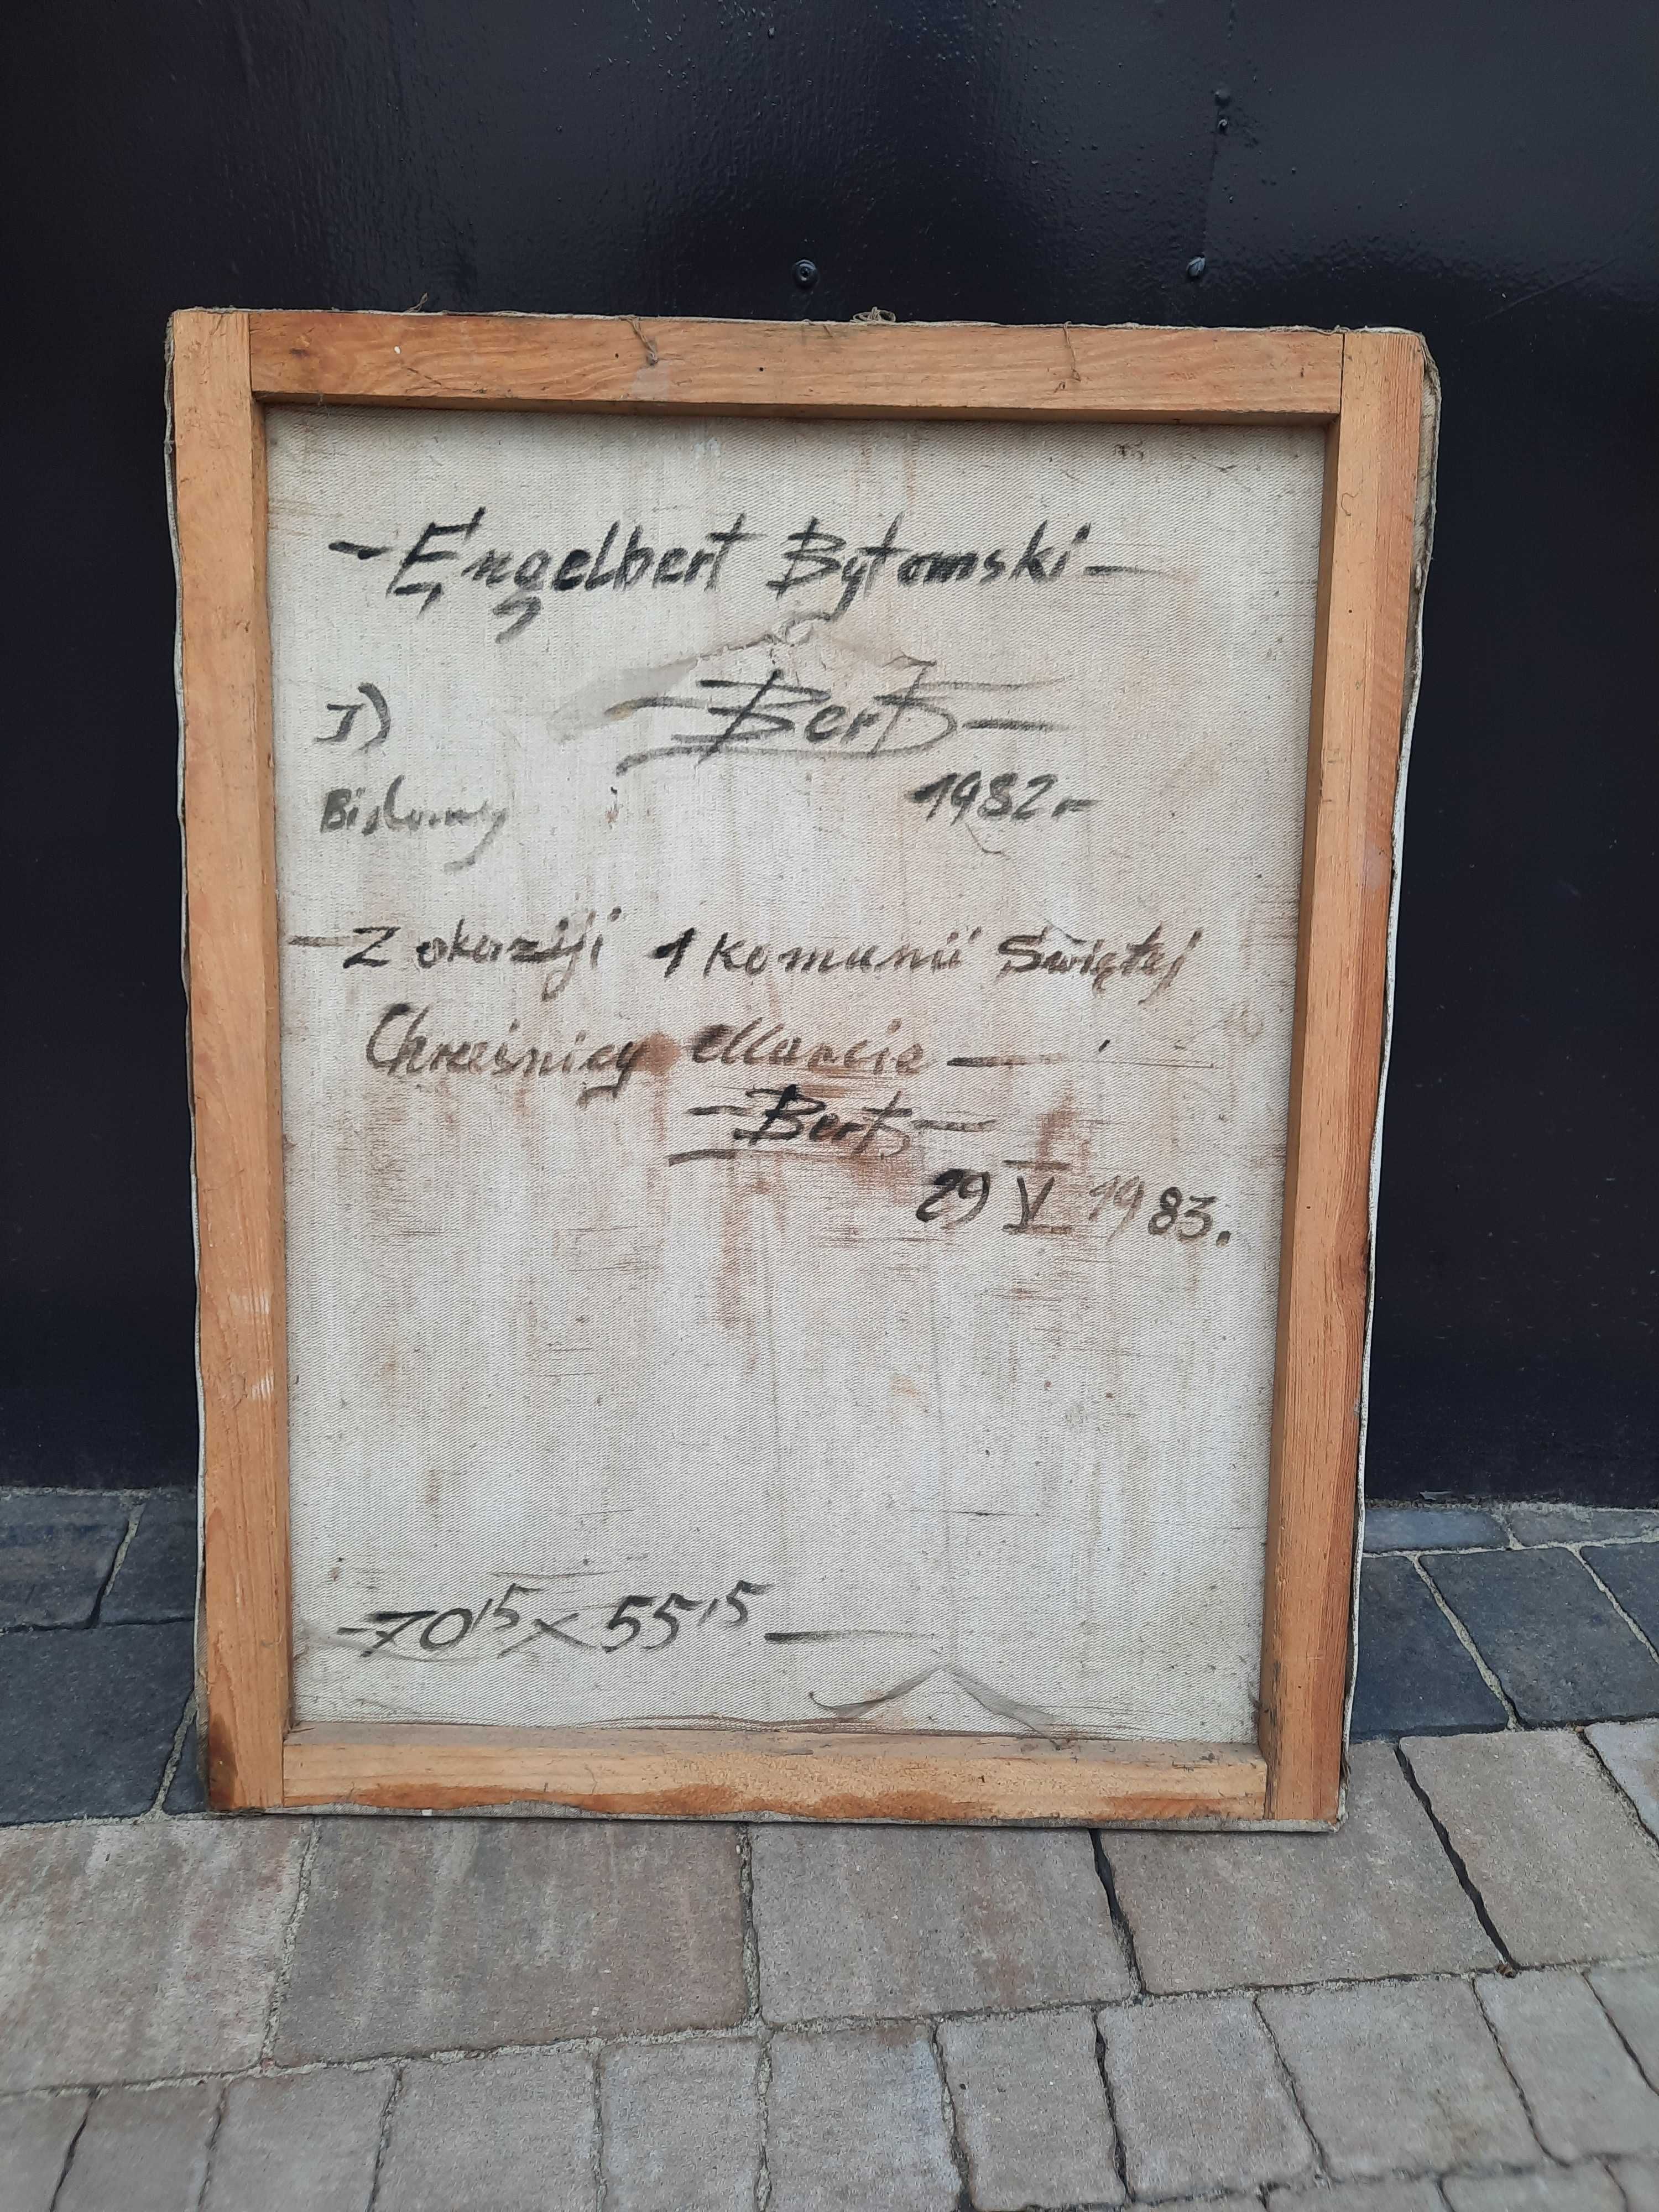 - Engelbert Bytomski -
I)
BertB
1982r
- Z okazyji 1 Komunii Świętej
Chrześnicy Marcie -
- BertB -
29 V 1983.
- 70,5 x 55,5 -